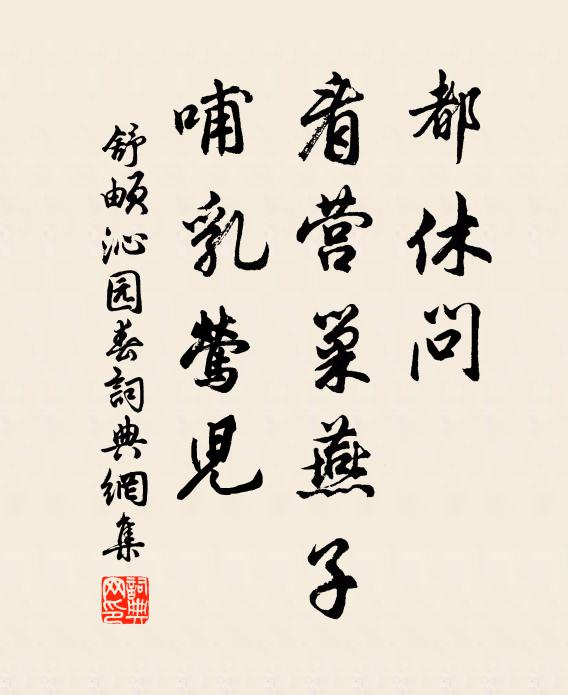 都休问
看营巢燕子
哺乳莺児
舒頔沁园春詞典網集
詞典网印